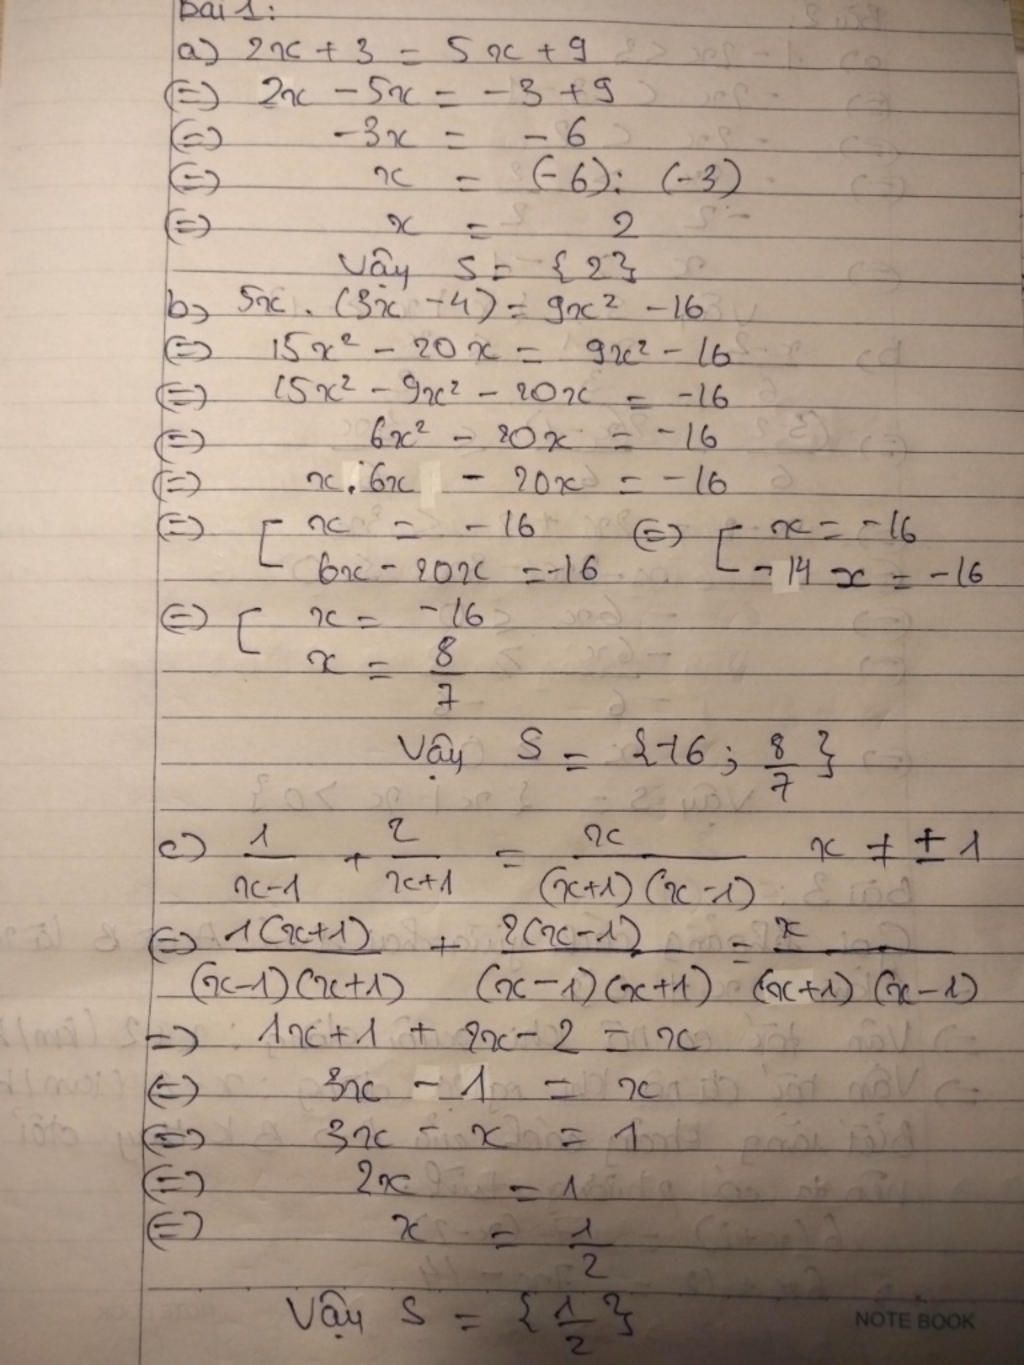 Bài 1:
a) 2x + 3 = 5x + 9
(=) 2x - 5x = -3 + 9
(=) -3x = -6
(=) x = (-6) : (-3)
(=) x = 2
Vậy S = {2}
b) 5x . (3x - 4) = 9x² - 16
(=) 15x² - 20x = 9x² - 16
(=) 15x² - 9x² - 20x = -16
(=) 6x² - 20x = -16
(=) x . 6x - 20x = -16
(=) [ x = -16 (=) [ x = -16
6x - 20x = -16 -14x = -16
(=) [ x = -16
x = 8/7
Vậy S = {-16 ; 8/7}
c) 1/(x-1) + 2/(x+1) = x/((x+1)(x-1)) x ≠ ± 1
(=) 1(x+1)/((x-1)(x+1)) + 2(x-1)/((x-1)(x+1)) = x/((x+1)(x-1))
=) 1x + 1 + 2x - 2 = x
(=) 3x - 1 = x
(=) 3x - x = 1
(=) 2x = 1
(=) x = 1/2
Vậy S = {1/2}
NOTE BOOK